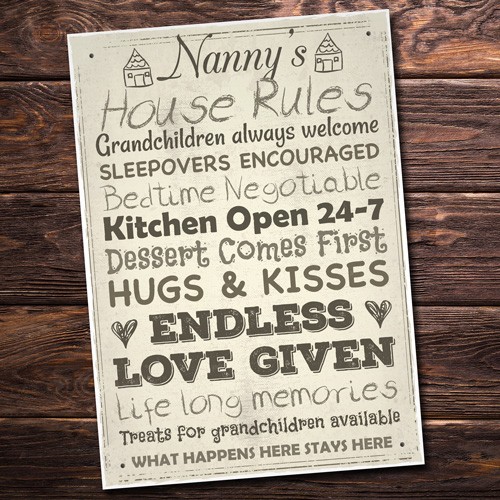 Nanny's
House Rules
Grandchildren always welcome
SLEEPOVERS ENCOURAGED
Bedtime Negotiable
Kitchen Open 24-7
Dessert Comes First
HUGS & KISSES
ENDLESS
LOVE GIVEN
Life long memories
Treats for grandchildren available
WHAT HAPPENS HERE STAYS HERE